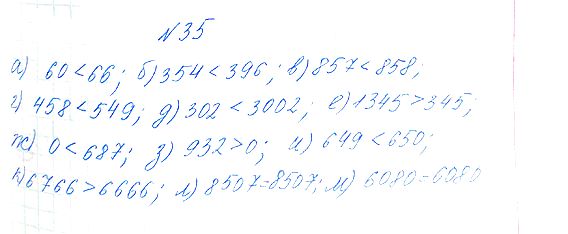 №35
а) 60<66; б) 354<396; в) 857<858;
г) 458<549; д) 302<3002; е) 1345>345;
ж) 0<687; з) 932>0; и) 649<650;
к) 6766>6666; л) 8507=8507; м) 6080=6080